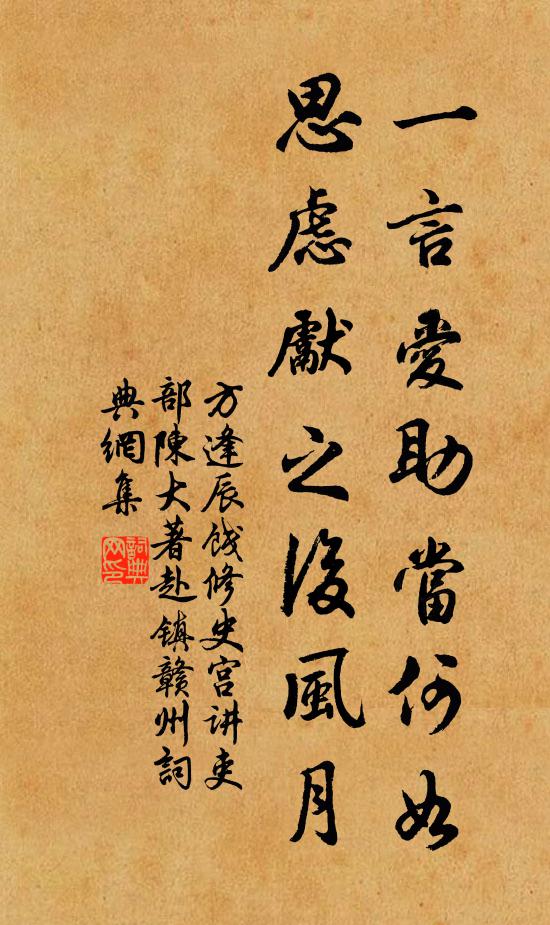 一言愛助當何如
思慮獻之後風月
方逢辰餞修史宫讲吏
部陳大著赴镇赣州詞
典網集
詞典
网印